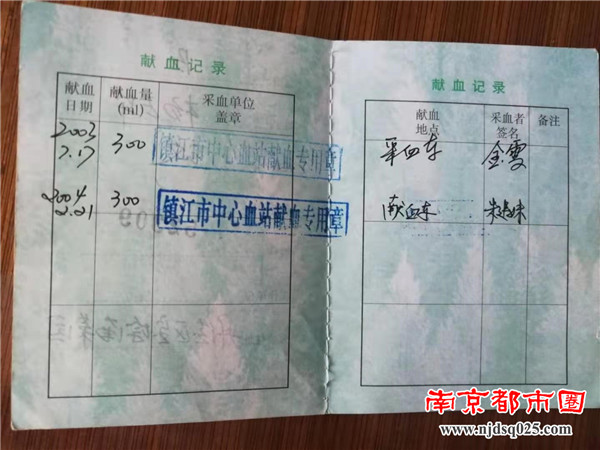 献血记录
献血
日期
献血量
(ml)
采血单位
盖章
2003
7.17
300
镇江市中心血站献血专用章
2004
2.21
300
镇江市中心血站献血专用章
献血记录
献血
地点
采血者
签名
备注
采血车
金雯
献血车
南京都市圈
www.njdsq025.com